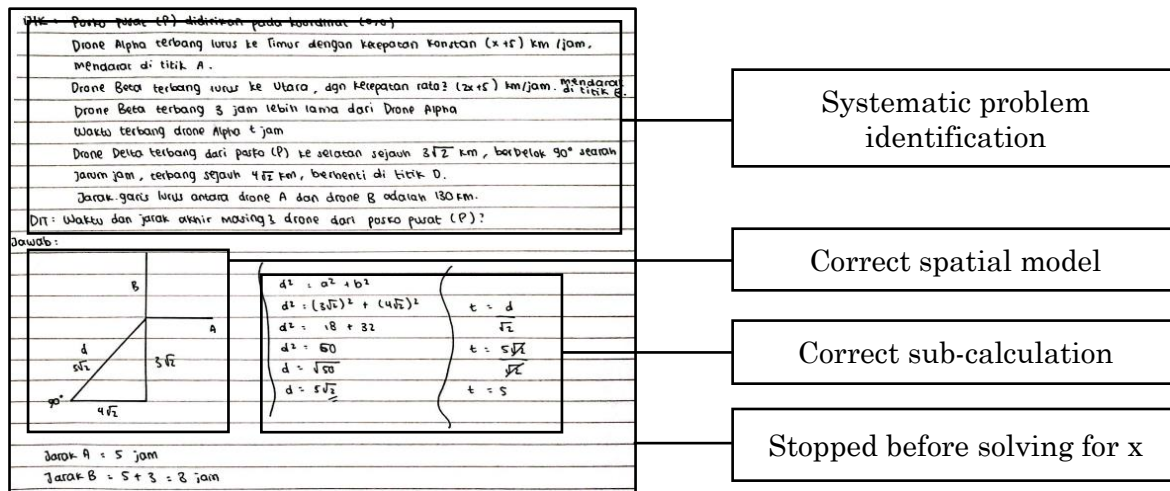 DIK : Posko pusat (P) didirikan pada koordinat (0,0)
Drone Alpha terbang lurus ke Timur dengan kecepatan konstan (x+5) km/jam,
mendarat di titik A.
Drone Beta terbang lurus ke Utara, dgn kecepatan rata2 (2x+5) km/jam. mendarat di titik B.
Drone Beta terbang 3 jam lebih lama dari Drone Alpha
Waktu terbang drone Alpha t jam
Drone Delta terbang dari posko (P) ke selatan sejauh 3√2 km, berbelok 90° searah
jarum jam, terbang sejauh 4√2 km, berhenti di titik D.
Jarak garis lurus antara drone A dan drone B adalah 130 km.
DIT : Waktu dan jarak akhir masing2 drone dari posko pusat (P)?
Jawab :
B
A
d
5√2
3√2
90°
4√2
d² = a² + b²
d² = (3√2)² + (4√2)²
d² = 18 + 32
d² = 50
d = √50
d = 5√2
t = d
√2
t = 5√2
√2
t = 5
Jarak A = 5 jam
Jarak B = 5 + 3 = 8 jam
Systematic problem
identification
Correct spatial model
Correct sub-calculation
Stopped before solving for x